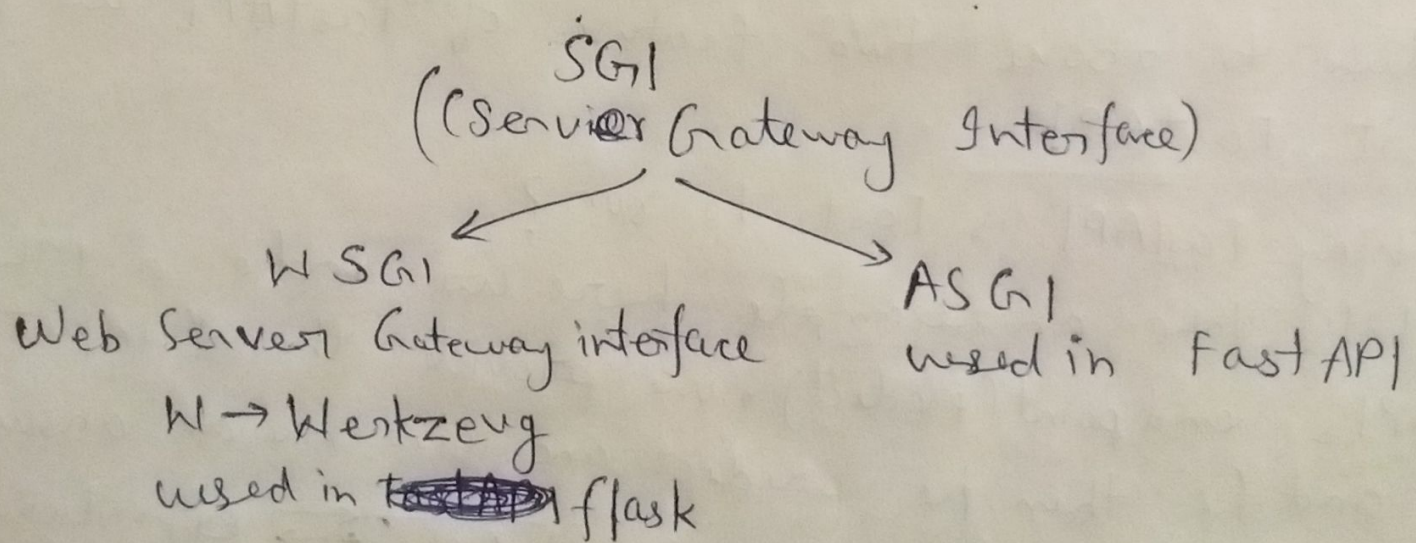 SGI
((Server Gateway Interface)
WSGI
Web Server Gateway interface
W → Werkzeug
used in flask
ASGI
used in Fast API